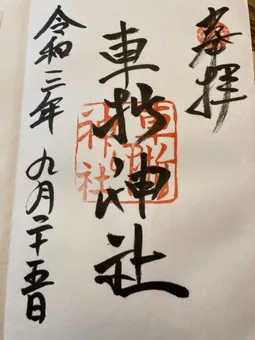 奉拝
車折神社
令和三年 九月二十五日
車折
神社